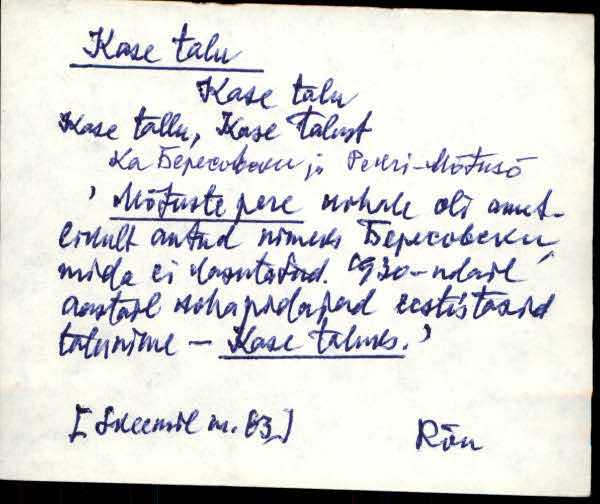 Kase talu
Kase talu
Kase tallu, Kase talust
Ka Бересовски ja Peeri-Mõtusõ
' Mõtuste pere kohale oli amet-
likult antud nimeks Бересовски,
mida ei kasutatud. 1930-ndail
aastail kohapidajad eestistasid
talunime — Kase taluks.'
[Skeemil nr. 63]
Rõu